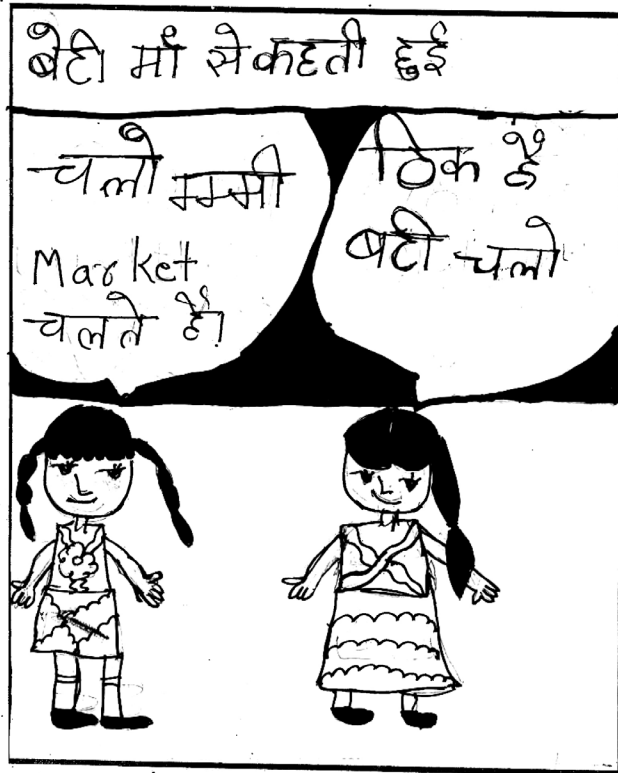 बेटी माँ से कहती हुई
चलो मम्मी
Market
चलते हैं।
ठिक हैं
बटी चलो